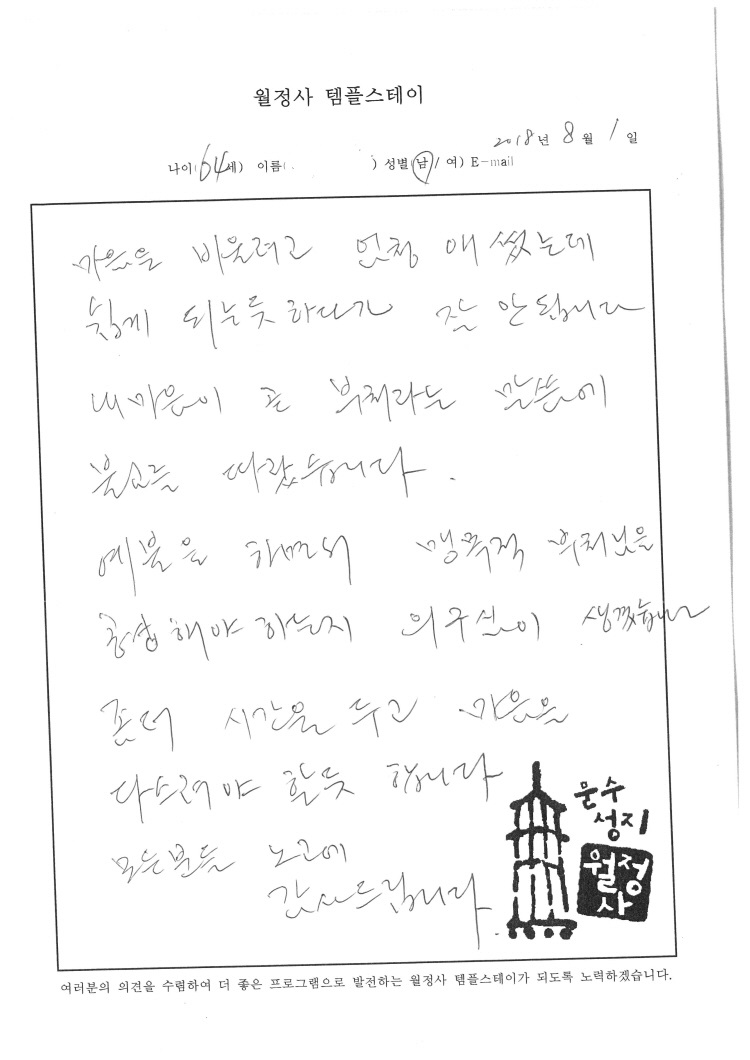 월정사 템플스테이
2018년 8월 1일
나이(64세) 이름( ) 성별(남/여) E-mail
마음을 비울려고 엄청 애썼는데
쉽게 되는듯 하다가 잘 안됩니다
내마음이 곧 부처라는 말씀에
불교를 따랐습니다.
예불을 하면서 맹목적 부처님을
공양해야 하는지 의구심이 생겼습니다
좀더 시간을 두고 마음을
다스려야 할듯 합니다
모든분들 노고에
감사드립니다.
문수
성지
월정
사
여러분의 의견을 수렴하여 더 좋은 프로그램으로 발전하는 월정사 템플스테이가 되도록 노력하겠습니다.